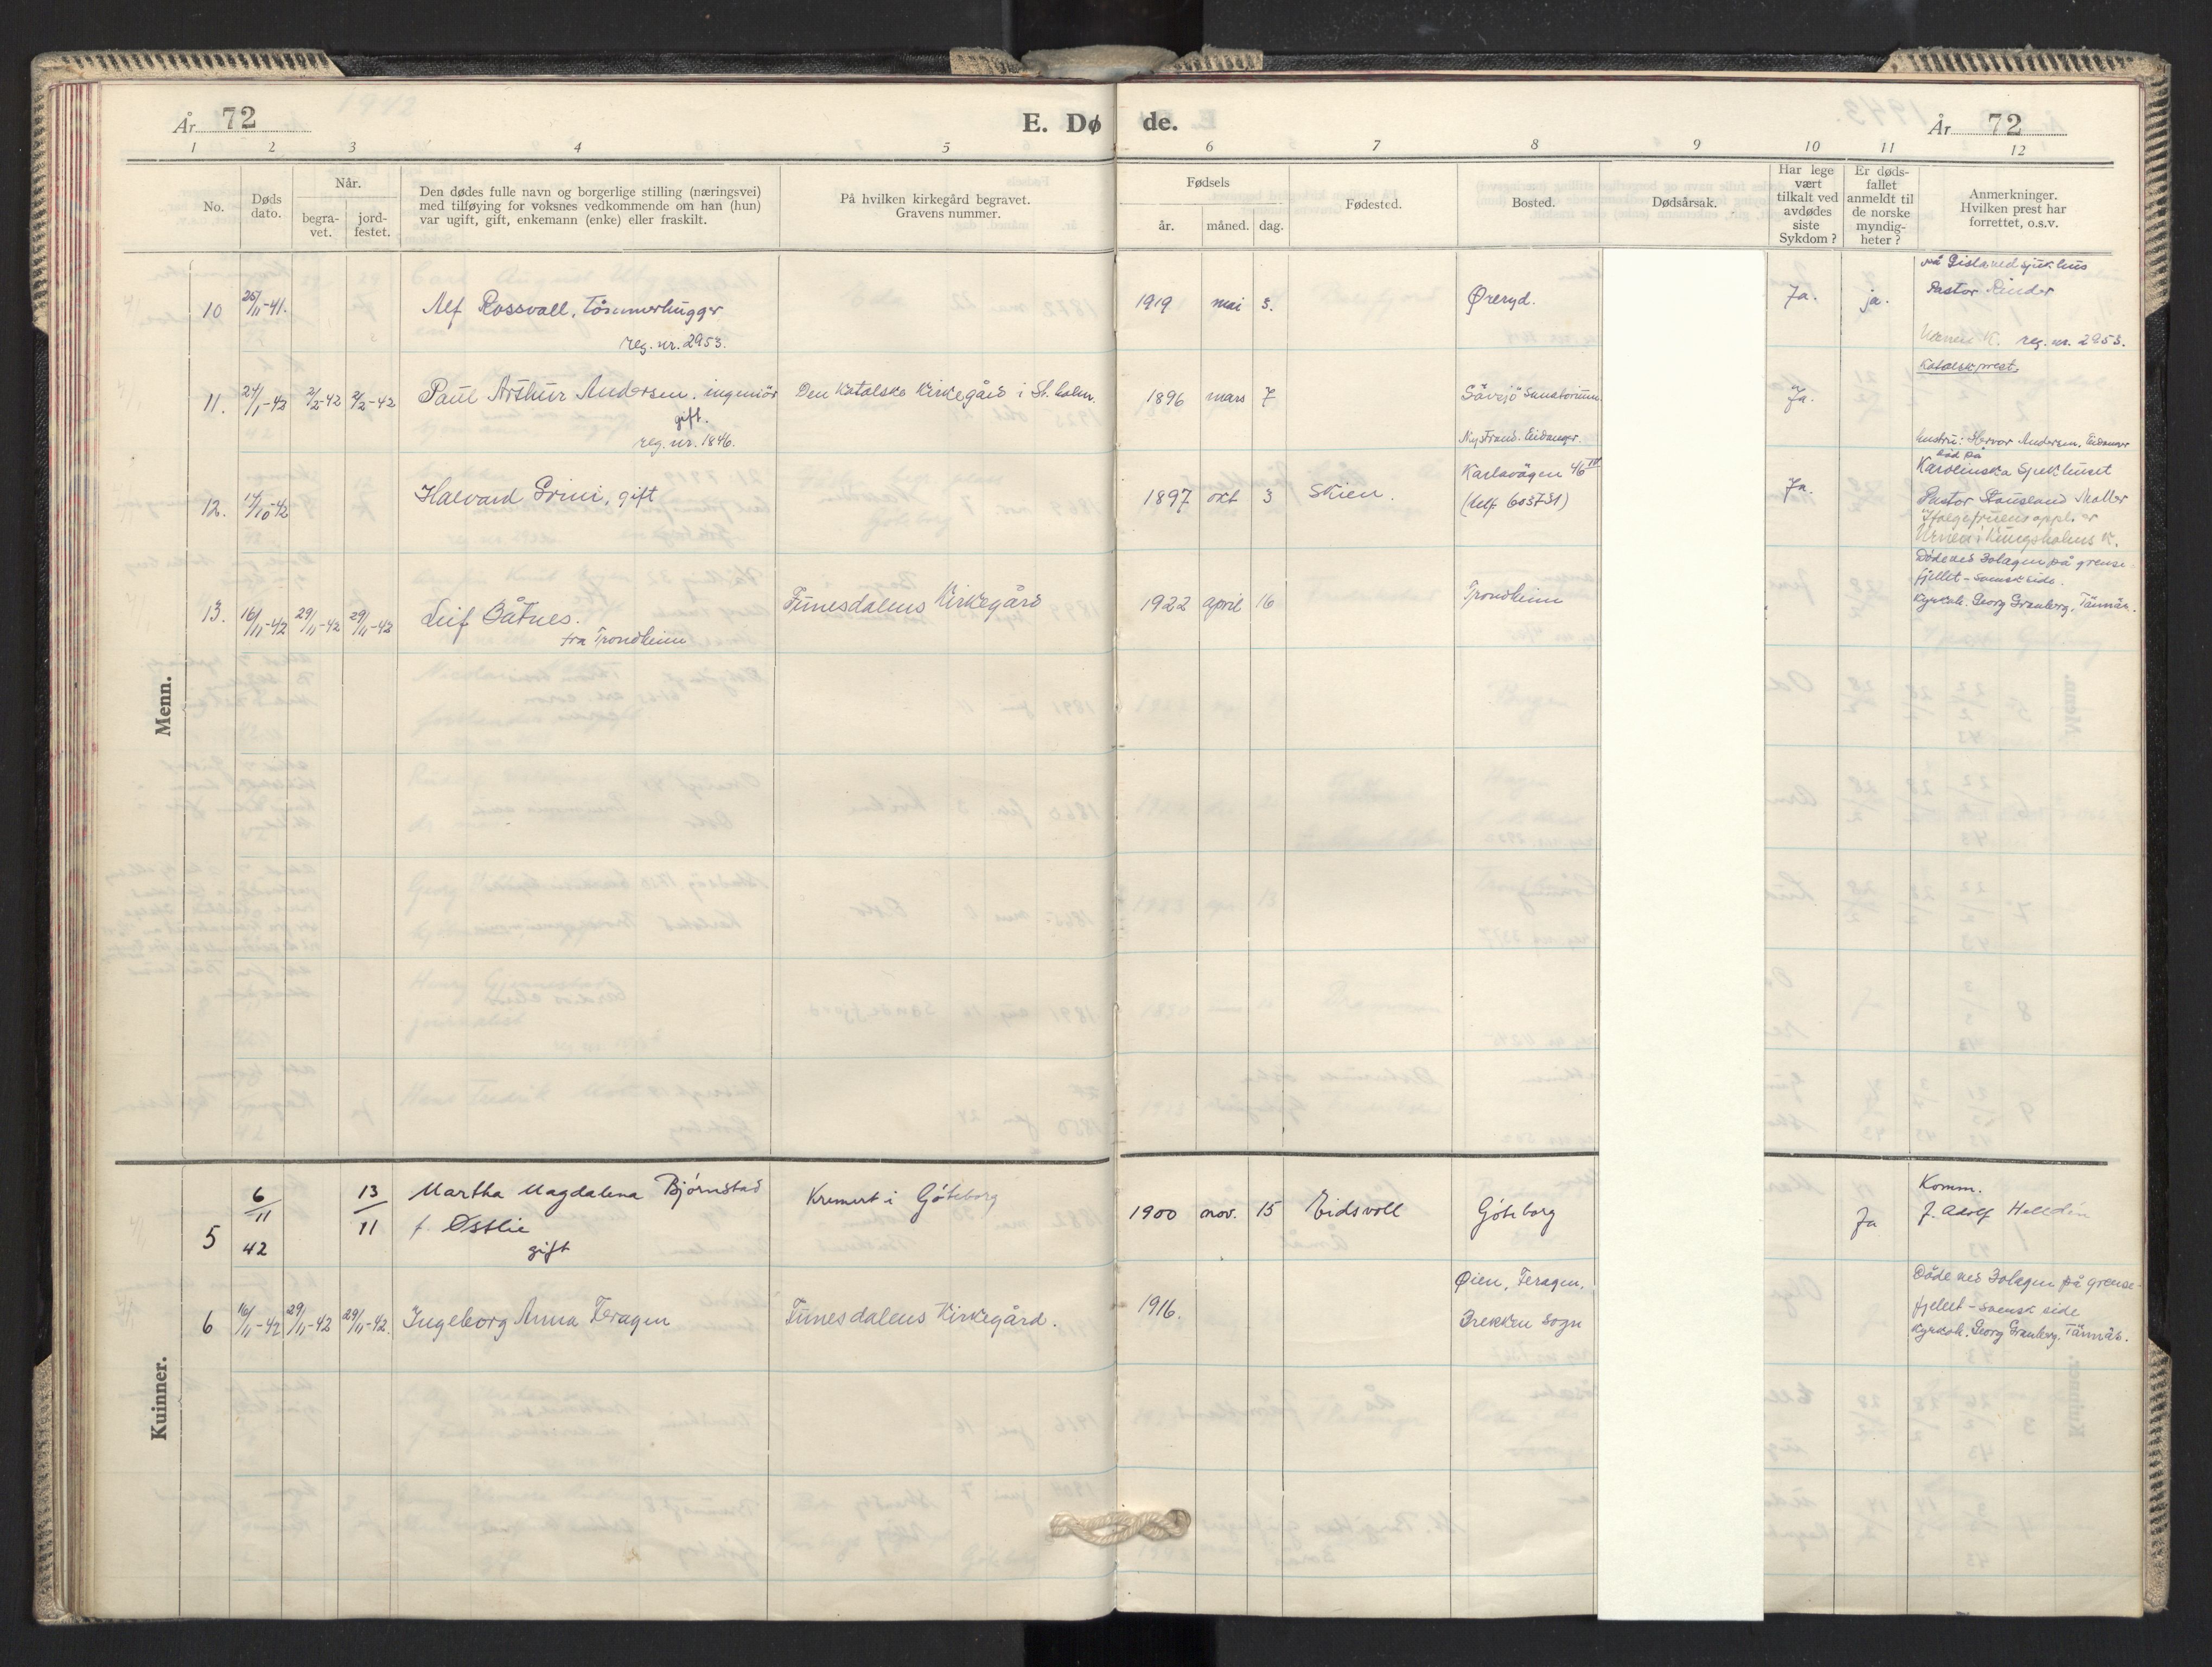 År 72
E. Dø
de.
År 72
1 2 3 4 5
6 7 8 9 10 11 12
No.
Døds dato.
Når.
begra-
vet.
jord-
festet.
Den dødes fulle navn og borgerlige stilling (næringsvei)
med tilføying for voksnes vedkommende om han (hun)
var ugift, gift, enkemann (enke) eller fraskilt.
På hvilken kirkegård begravet.
Gravens nummer.
Fødsels
år. måned. dag.
Fødested.
Bosted.
Dødsårsak.
Har lege
vært
tilkalt ved
avdødes
siste
Sykdom?
Er døds-
fallet
anmeldt til
de norske
myndig-
heter?
Anmerkninger.
Hvilken prest har
forrettet, o.s.v.
Menn.
10 25/11-41. Alf Rossvoll, tömmerhugger
reg. nr. 2953.
1919 mai 3. Øreryd. Ja. ja.
på Gislaved sjukhus
Pastor Rinder
reg. nr. 2953.
11. 24/1-42 2/2-42 2/2-42 Paul Arthur Andersen, ingeniör
gift.
reg. nr. 1846.
Den Katolske Kirkegård i St.holm.
1896 mars 7 Sävsjö Sanatorium
Nystrand. Eidanger.
Ja.
Katolsk prest,
hustru: Hervor Andersen, Eidanger
12. 14/10-42 Halvard Grini, gift
1897 okt 3 Skien.
Karlavägen 46 IV
(telf. 603731)
Ja.
død på
Karolinska Sjukhuset
Pastor Stausland Møller
Urnen i Kungsholms K.
13. 16/11-42 29/11-42 29/11-42 Leif Båtnes.
fra Trondheim
Funesdalens Kirkegård
1922 april 16 Trondheim
Döde ves Bolagen på grense-
fjellet - svensk side.
Kyrkoh. Georg Granberg, Tännäs.
Kuinner.
5 6/11 42 13/11 Martha Magdalena Bjørnstad
f. Østlie
gift
Kremert i Göteborg
1900 nov. 15 Eidsvoll Göteborg Ja
Komm.
J. Adolf Helldén
6 16/11-42 29/11-42 29/11-42. Ingeborg Anna Feragen
Funesdalens Kirkegård.
1916.
Øien, Feragen,
Brekken sogn
Döde ves Bolagen på grense-
fjellet - svensk side
Kyrkoh. Georg Granberg, Tännäs.